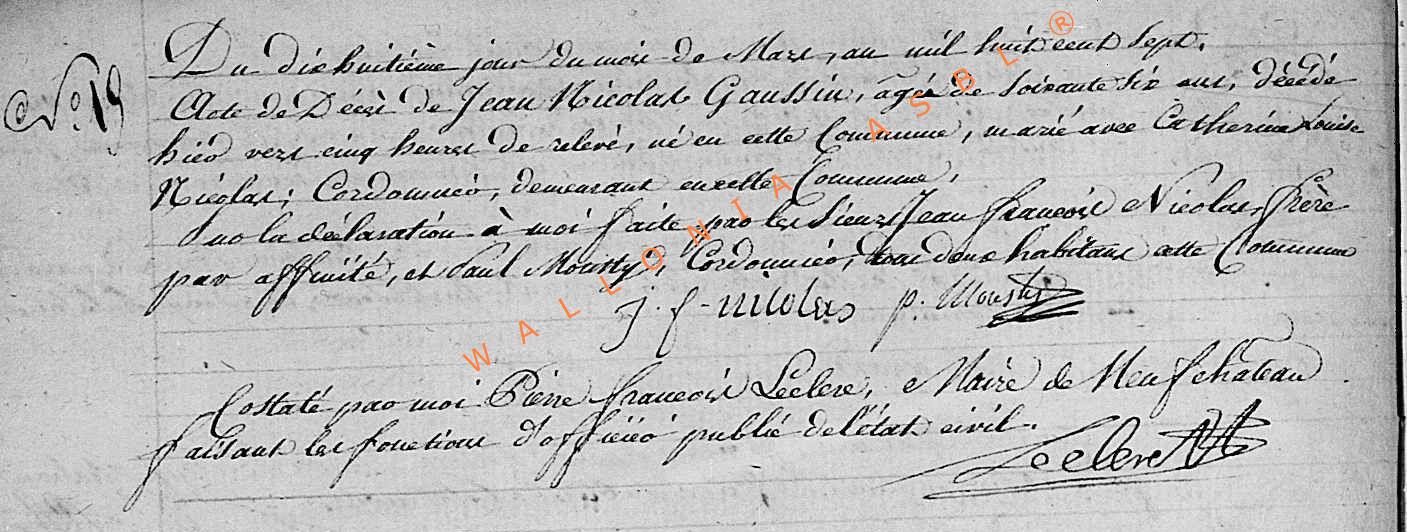 N.° 19
Du dixhuitième jour du mois de Mars, an mil huit cent sept.
Acte de Décès de Jean Nicolas Gaussin, agée de soixante six ans, décédé
hier vers cinq heures de relevé, né en cette Commune, marié avec Catherine Louise
Nicolas; Cordonnier, demeurant en celle Commune,
Sur la déclaration à moi faite par les Sieurs Jean françois Nicolas, frère
par affinité, et Paul Mousty, Cordonnier, tous deux habitans cette Commune
j. f. nicolas p. Mousty
Costaté par moi Pierre françois Leclerc, Maire de Neufchâteau
faisant les fonctions d'officier public de l'état civil.
Leclerc
WALLONIA ASBL ®